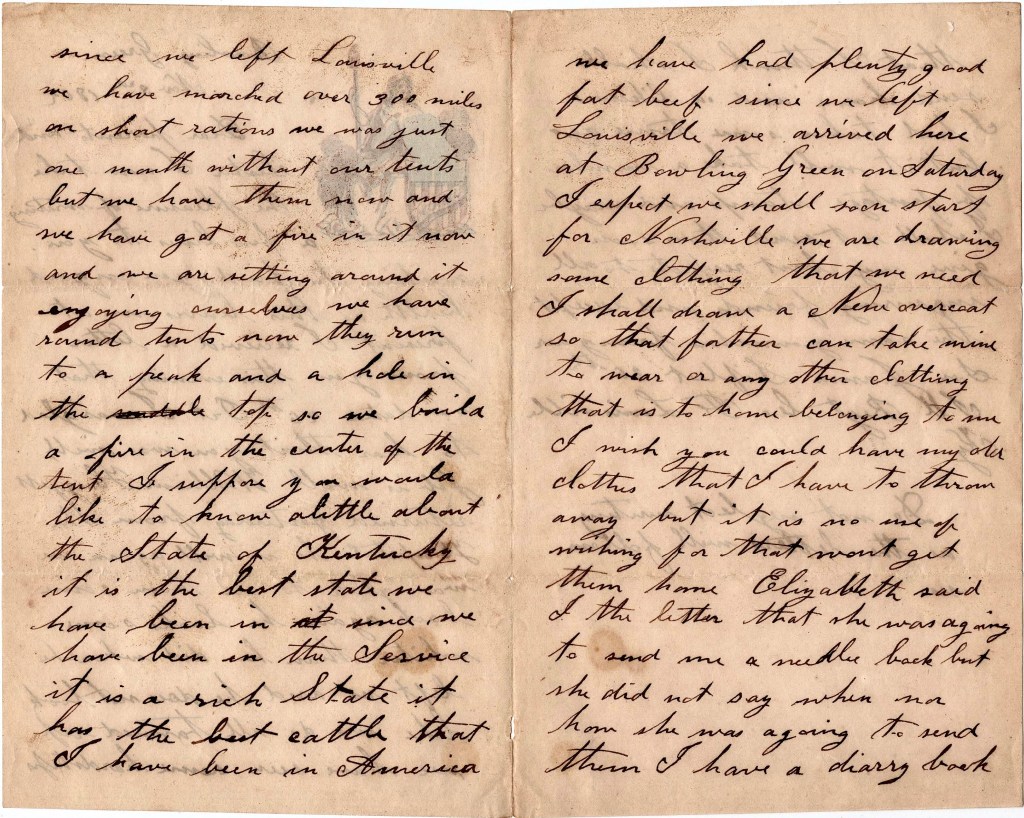 since we left Louisville
we have marched over 300 miles
on short rations we was just
one month without our tents
but we have them now and
we have got a fire in it now
and we are setting around it
engoying ourselves we have
round tents now they run
to a peak and a hole in
the top so we build
a fire in the center of the
tent I suppose you would
like to know alittle about
the State of Kentucky
it is the best state we
have been in it since we
have been in the Service
it is a rich State it
has the best cattle that
I have been in America
we have had plenty good
fat beef since we left
Louisville we arrived here
at Bowling Green on Saturday
I expect we shall soon start
for Nashville we are drawing
some clothing that we need
I shall draw a New overcoat
so that father can take mine
to wear or any other clothing
that is to home belonging to me
I wish you could have my older
clothes that I have to throw
away but it is no use of
wishing for that wont get
them home Elizabeth said
I the letter that she was agoing
to send me a needle back but
she did not say when nor
how she was agoing to send
them I have a diarry book